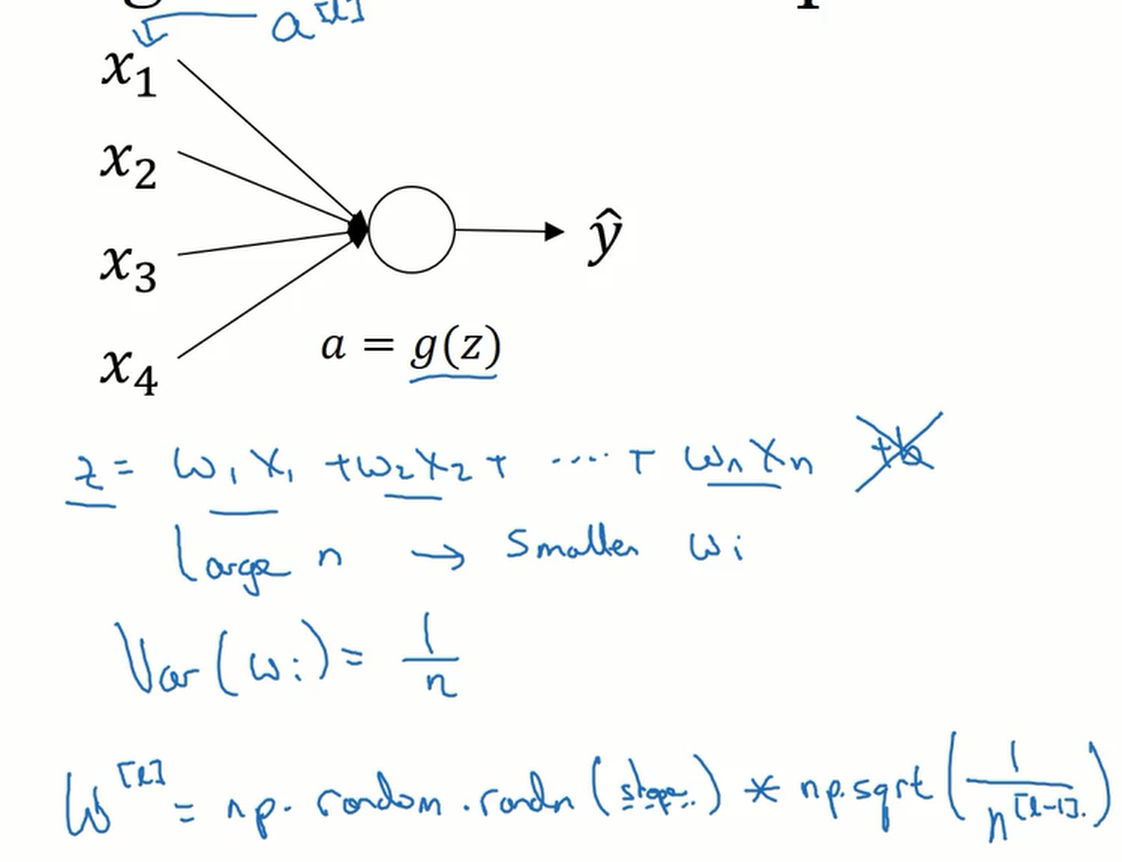 a^[l]
x₁
x₂
x₃
x₄
ŷ
a = g(z)
z = w₁x₁ + w₂x₂ + ..... + wₙxₙ +b
Large n → Smaller wi
Var(wi) = 1/n
W^[l] = np.random.randn(shape..) * np.sqrt(1/n^[l-1].)